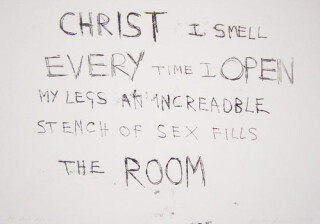 CHRIST I SMELL
EVERY TIME I OPEN
MY LEGS AN INCREADBLE
STENCH OF SEX FILLS
THE ROOM